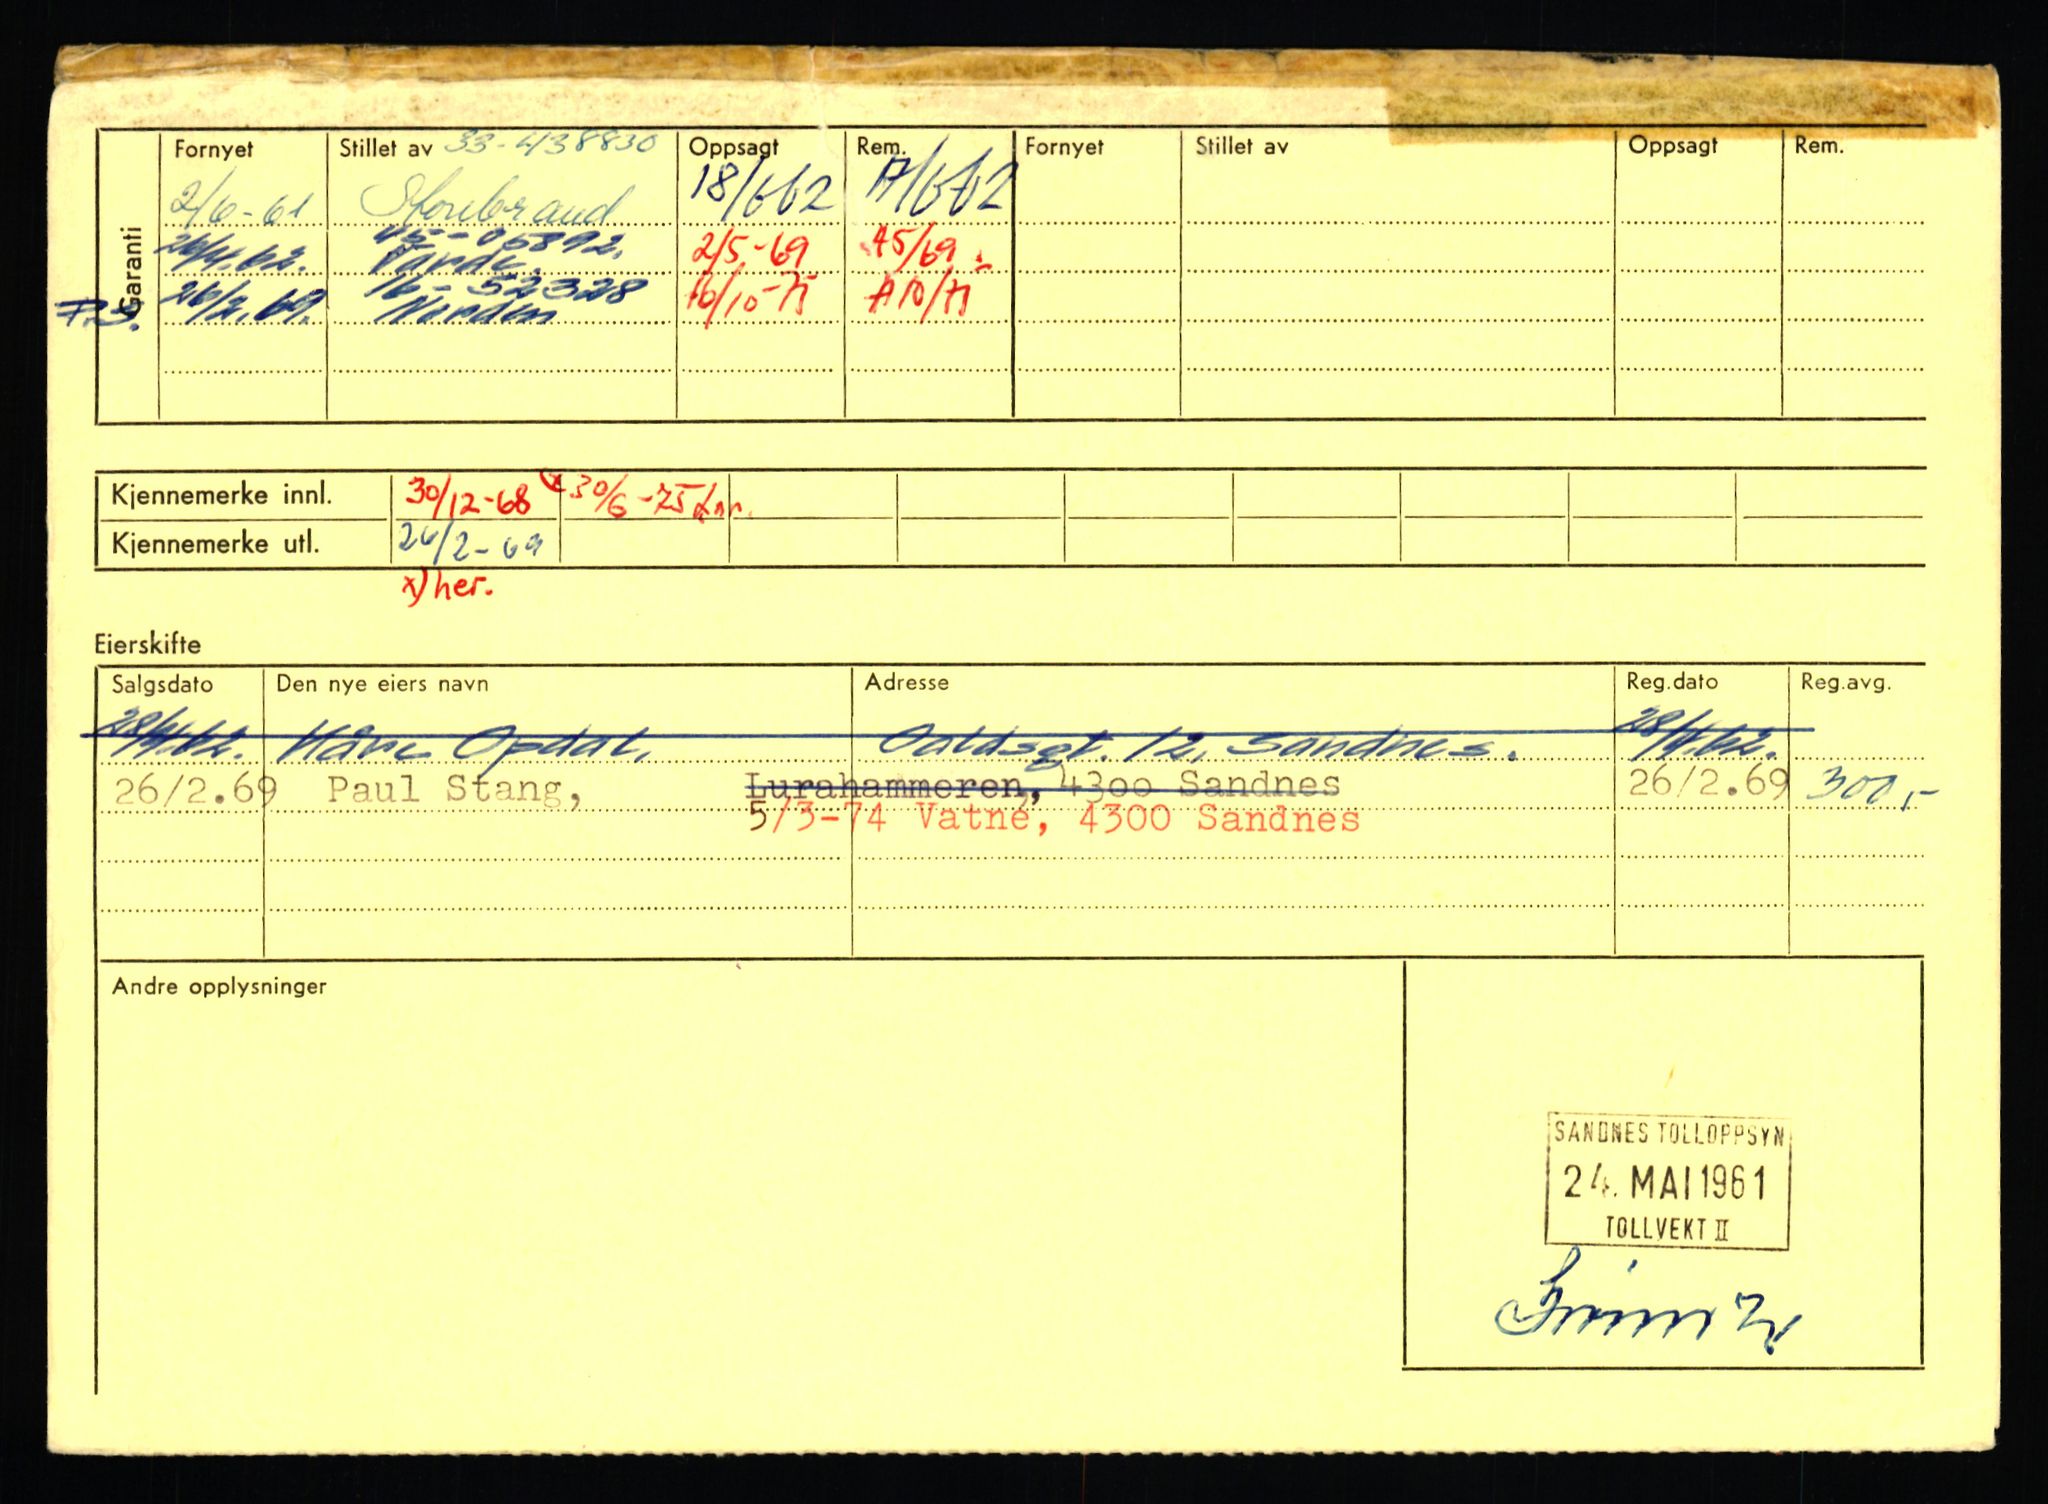 Fornyet Stillet av 33-438830 Oppsagt Rem. Fornyet Stillet av Oppsagt Rem.
Garanti
2/6-61 Storebrand 18/6 62 A/6 62
26/4.62. 45-05892. 2/5-69 A5/69.
16-52328
F.S. 26/2.69. Norden 10/10-75 A10/75
Kjennemerke innl. 30/12-68 x 30/6-75
Kjennemerke utl. 26/2-69
x) her.
Eierskifte
Salgsdato Den nye eiers navn Adresse Reg.dato Reg.avg.
28/4.62. Håvc Opdal, 12, Sandnes. 28/4.62.
26/2.69 Paul Stang, Lurahammeren, 4300 Sandnes 26/2.69 300,-
5/3-74 Vatne, 4300 Sandnes
Andre opplysninger
SANDNES TOLLOPPSYN
24. MAI 1961
TOLLVEKT II